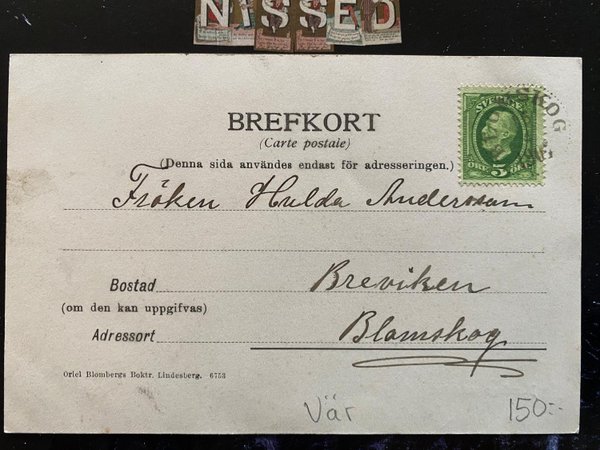 NISSED
BREFKORT
(Carte postale)
(Denna sida användes endast för adresseringen.)
SVERIGE
5
ÖRE
SKOG
Fröken Hulda Andersson
Bostad
Breviken
(om den kan uppgifvas)
Adressort
Blomskog
Oriel Blombergs Boktr. Lindesberg. 6753
Vär
150:-